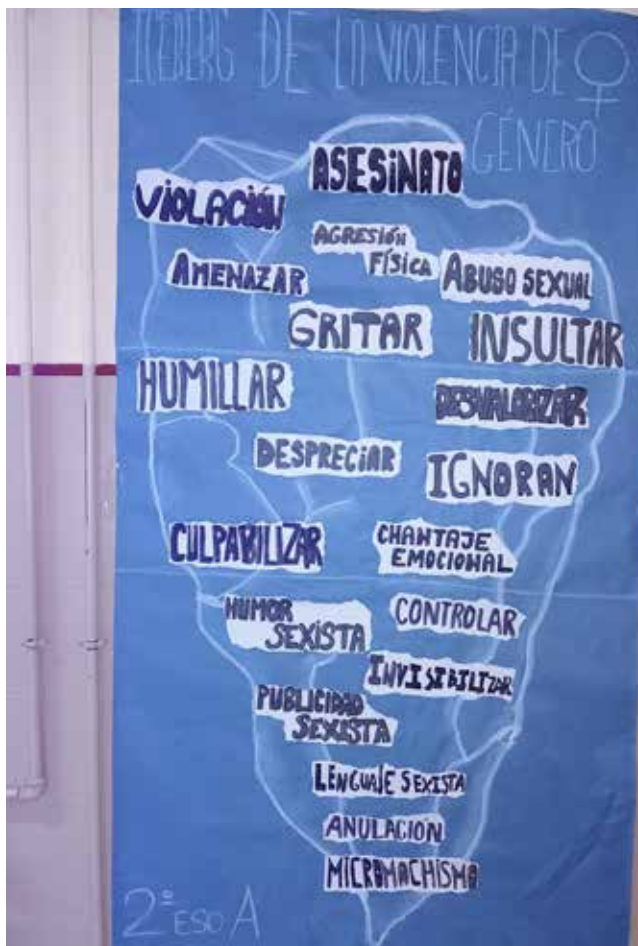 ICEBERG DE LA VIOLENCIA DE
GÉNERO
ASESINATO
VIOLACIÓN
AGRESIÓN
FÍSICA
AMENAZAR
ABUSO SEXUAL
GRITAR
INSULTAR
HUMILLAR
DESVALORIZAR
DESPRECIAR
IGNORAN
CULPABILIZAR
CHANTAJE
EMOCIONAL
HUMOR
SEXISTA
CONTROLAR
INVISIBILIZAR
PUBLICIDAD
SEXISTA
LENGUAJE SEXISTA
ANULACIÓN
MICROMACHISMO
2º ESO A